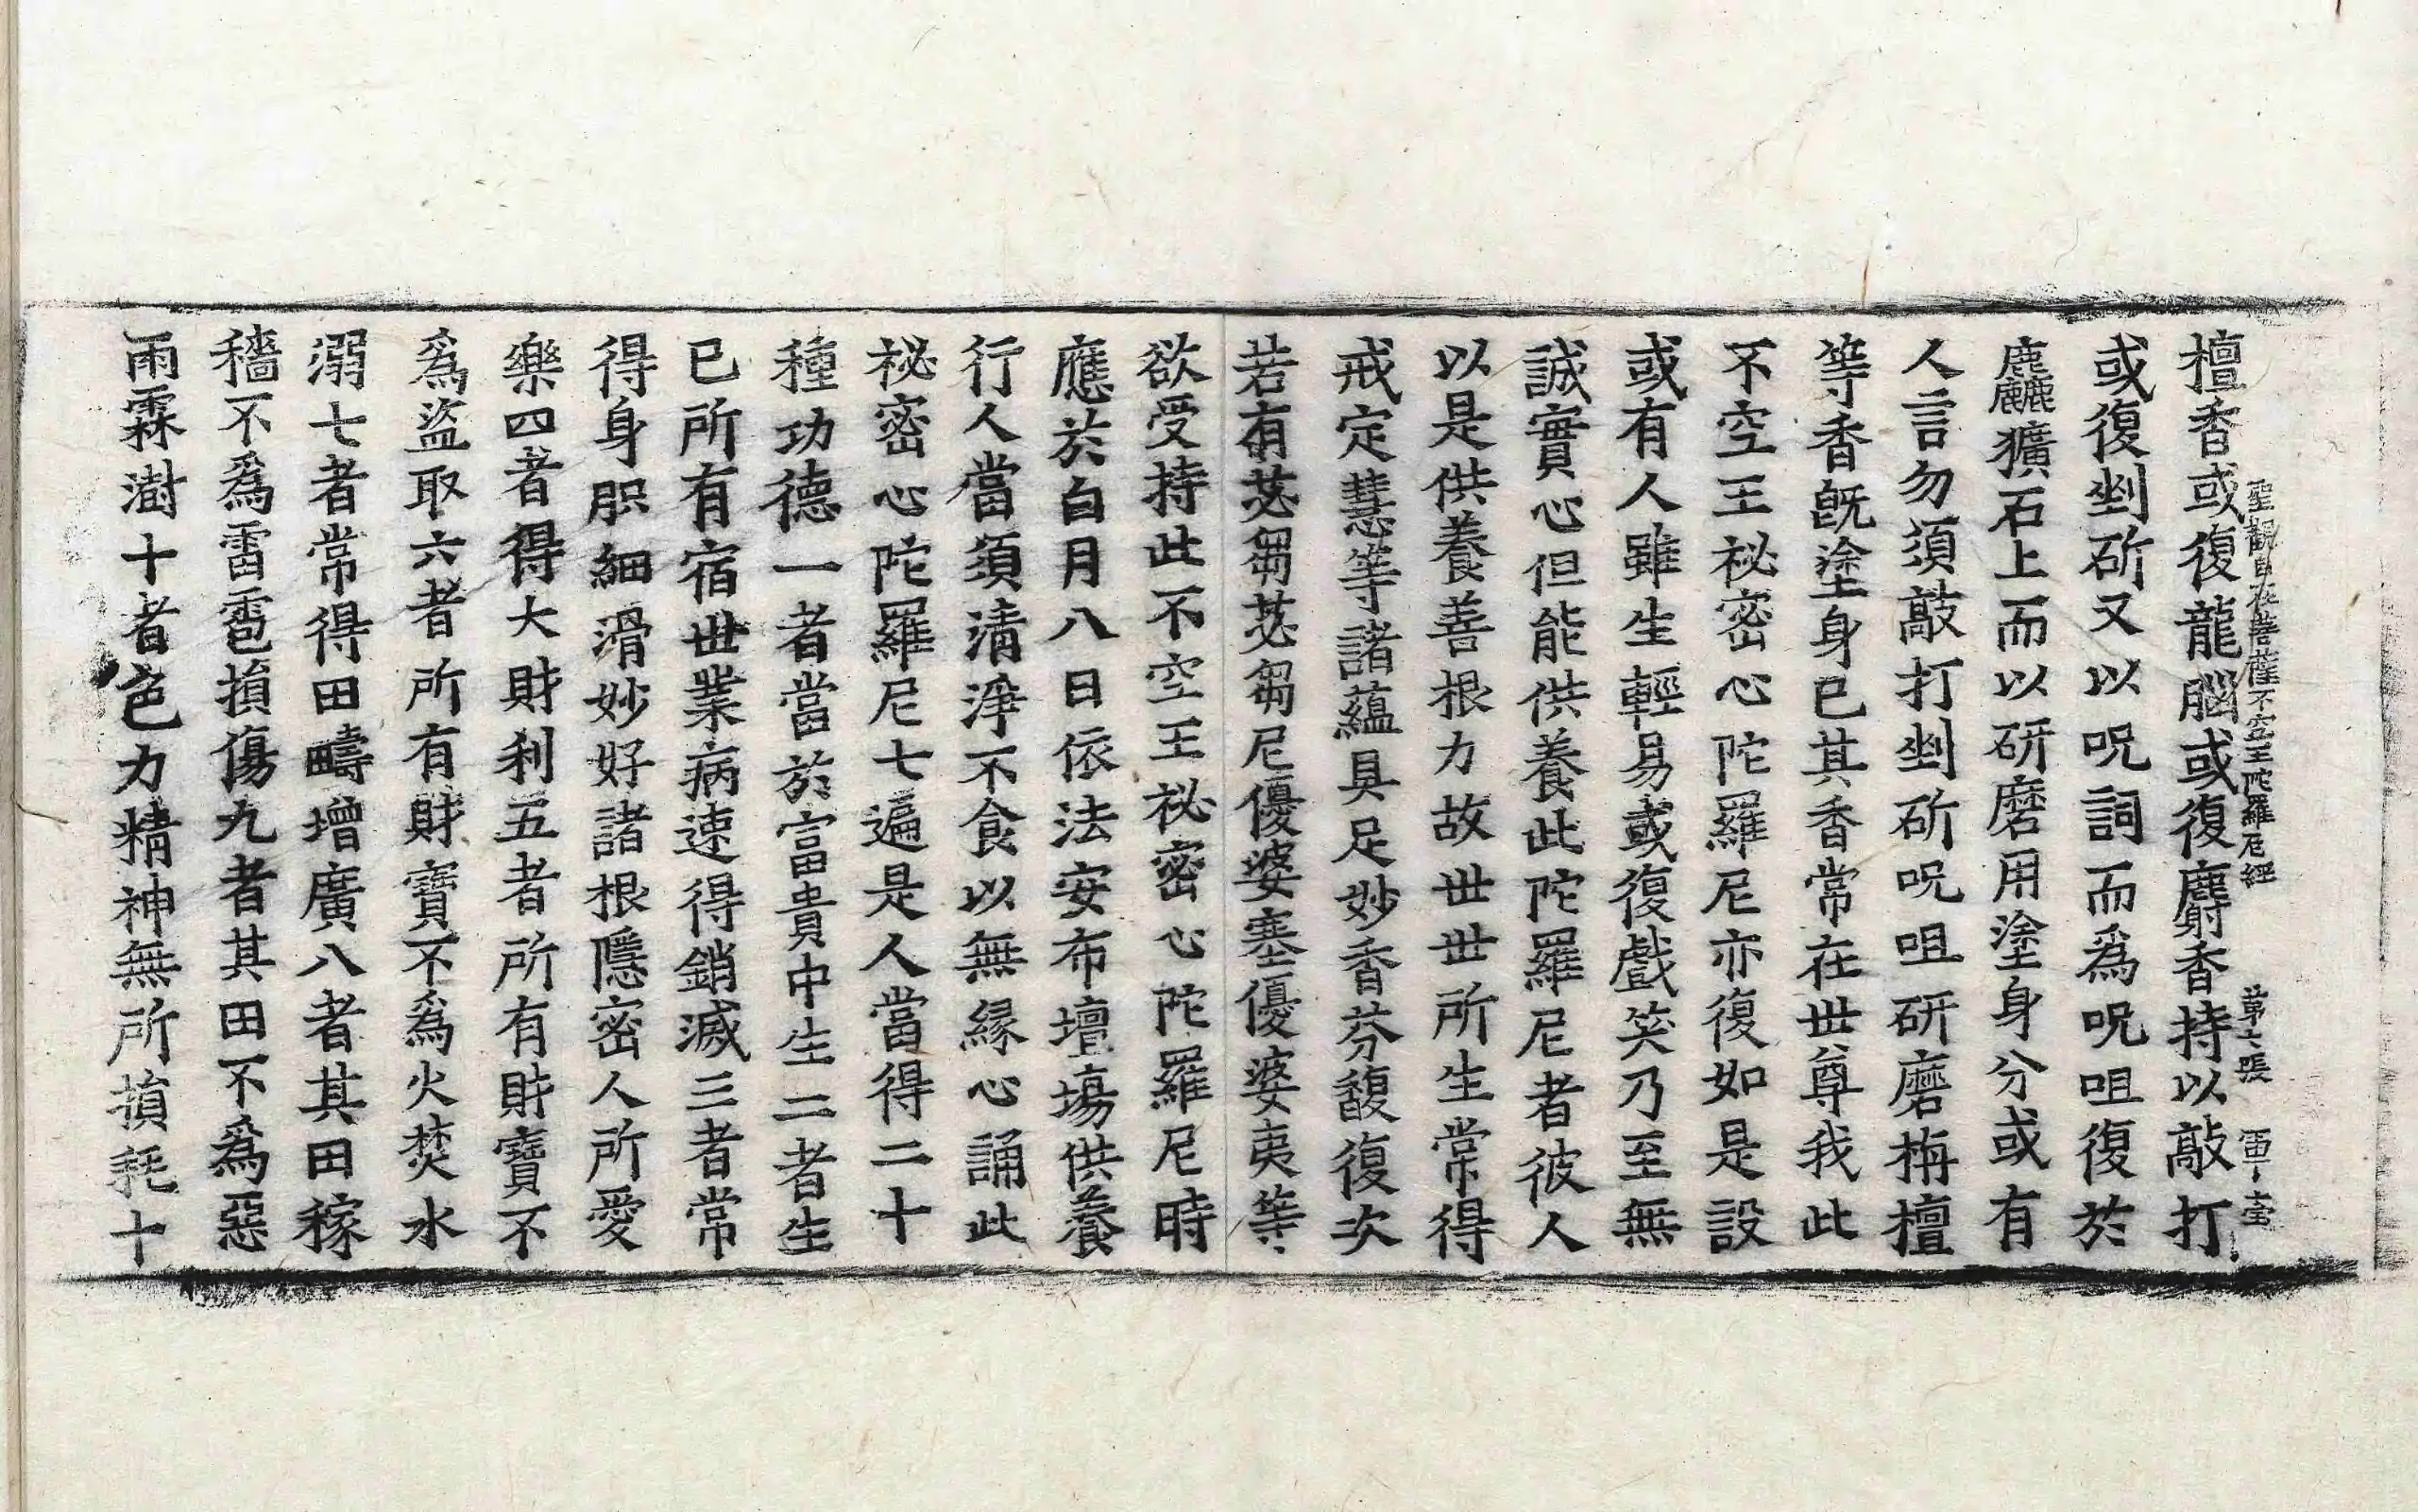 聖觀自在菩薩不空王陀羅尼經 第六張
檀香或復龍腦或復麝香持以敲打
或復剉斫又以呪詞而爲呪咀復於
麤獷石上而以研磨用塗身分或有
人言勿須敲打剉斫呪咀研磨栴檀
等香旣塗身已其香常在世尊我此
不空王祕密心陀羅尼亦復如是設
或有人雖生輕易或復戲笑乃至無
誠實心但能供養此陀羅尼者彼人
以是供養善根力故世世所生常得
戒定慧等諸蘊具足妙香芬馥復次
若有苾芻苾芻尼優婆塞優婆夷等
欲受持此不空王祕密心陀羅尼時
應於白月八日依法安布壇場供養
行人當須清淨不食以無緣心誦此
祕密心陀羅尼七遍是人當得二十
種功德一者當於富貴中生二者生
已所有宿世業病速得銷滅三者常
得身肥細滑妙好諸根隱密人所愛
樂四者得大財利五者所有財寶不
爲盜取六者所有財寶不爲火焚水
溺七者常得田疇增廣八者其田稼
穡不爲雷雹損傷九者其田不爲惡
雨霖澍十者色力精神無所損耗十